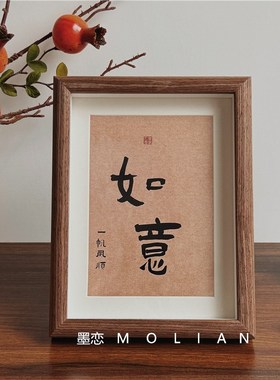 如意
一帆风顺
墨恋 MOLIAN